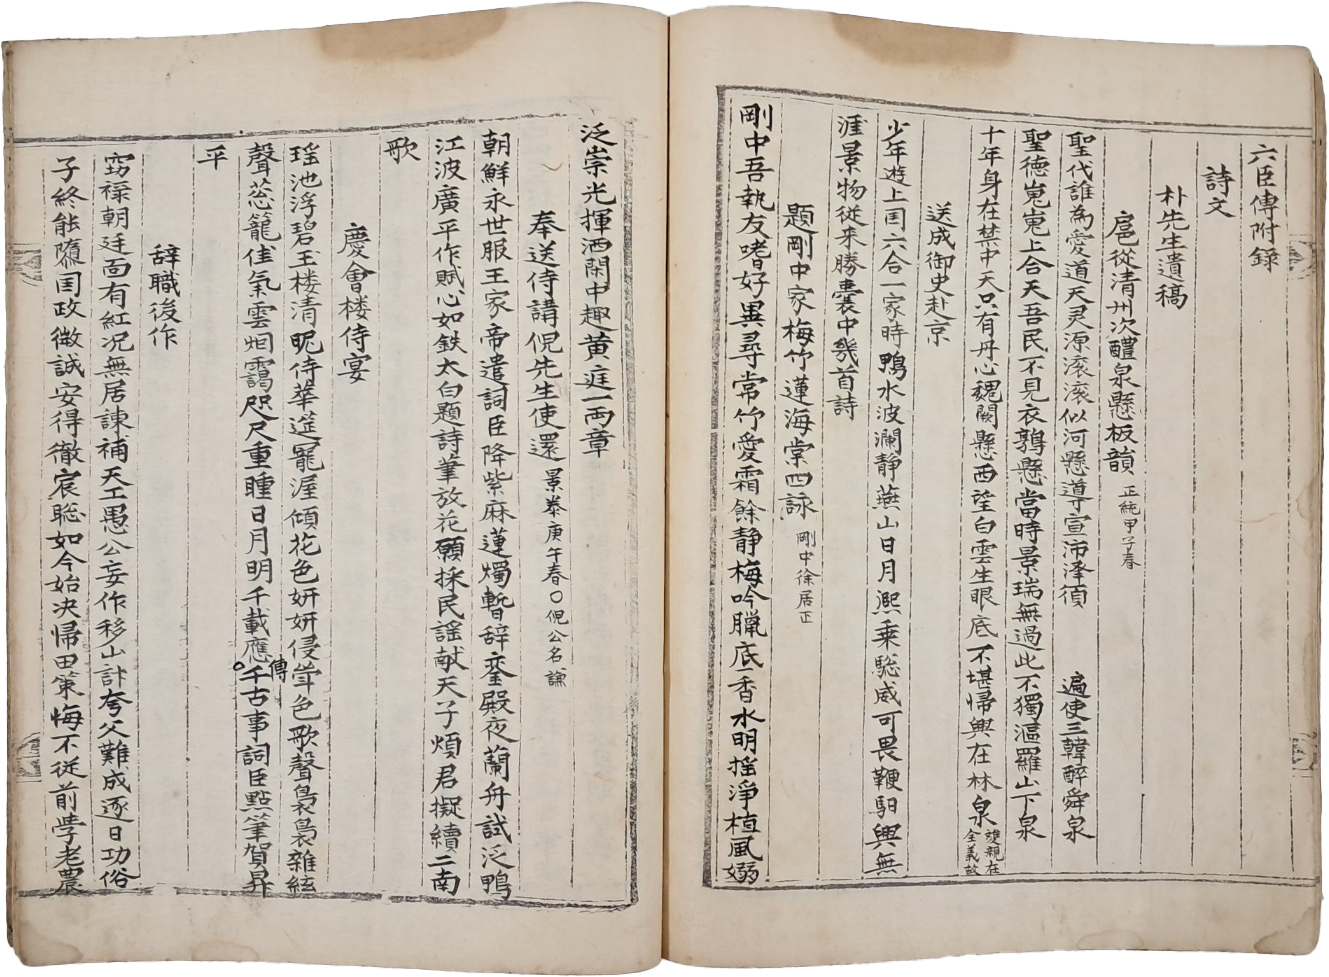 六臣傳附錄
詩文
朴先生遺稿
扈從清州次醴泉懸板韻 正統甲子春
聖代誰為愛道天灵源滚滚似河懸遵宣沛泽湏 遍使三韓醉舜泉
聖德嵬嵬上合天吾民不見衣鶉懸當時景瑞無過此不獨漚羅山下泉
十年身在禁中天只有丹心魏闕懸西望白雲生眼底不堪帰興在林泉 雙親在全義故
送成御史赴京
少年遊上囯六合一家時鴨水波瀾静燕山日月熙乗驄威可畏鞭馹興無
涯景物從来勝囊中幾首詩
題剛中家梅竹蓮海棠四詠 剛中徐居正
剛中吾執友嗜好異尋常竹愛霜餘静梅吟臘底香水明揺淨植風嫋
泛崇光揮洒閑中趣黄庭一两章
奉送侍講倪先生使還 景泰庚午春〇倪公名謙
朝鮮永世服王家帝遣詞臣降紫麻蓮燭暫辞銮殿夜蘭舟試泛鴨
江波廣平作賦心如鉄太白題詩筆放花願採民謡献天子煩君擬續二南
歌
慶會楼侍宴
瑶池浮碧玉楼清昵侍華筵寵渥傾花色妍妍侵岸色歌聲裊裊雜絃
聲葱籠佳氣雲烟靄咫尺重瞳日月明千載應傳千古事詞臣點筆賀昇
平
辞職後作
窃禄朝廷面有紅况無居諫補天工愚公妄作移山計夸父難成逐日功俗
子終能隳囯政微誠安得徹宸聡如今始决帰田策悔不従前学老農